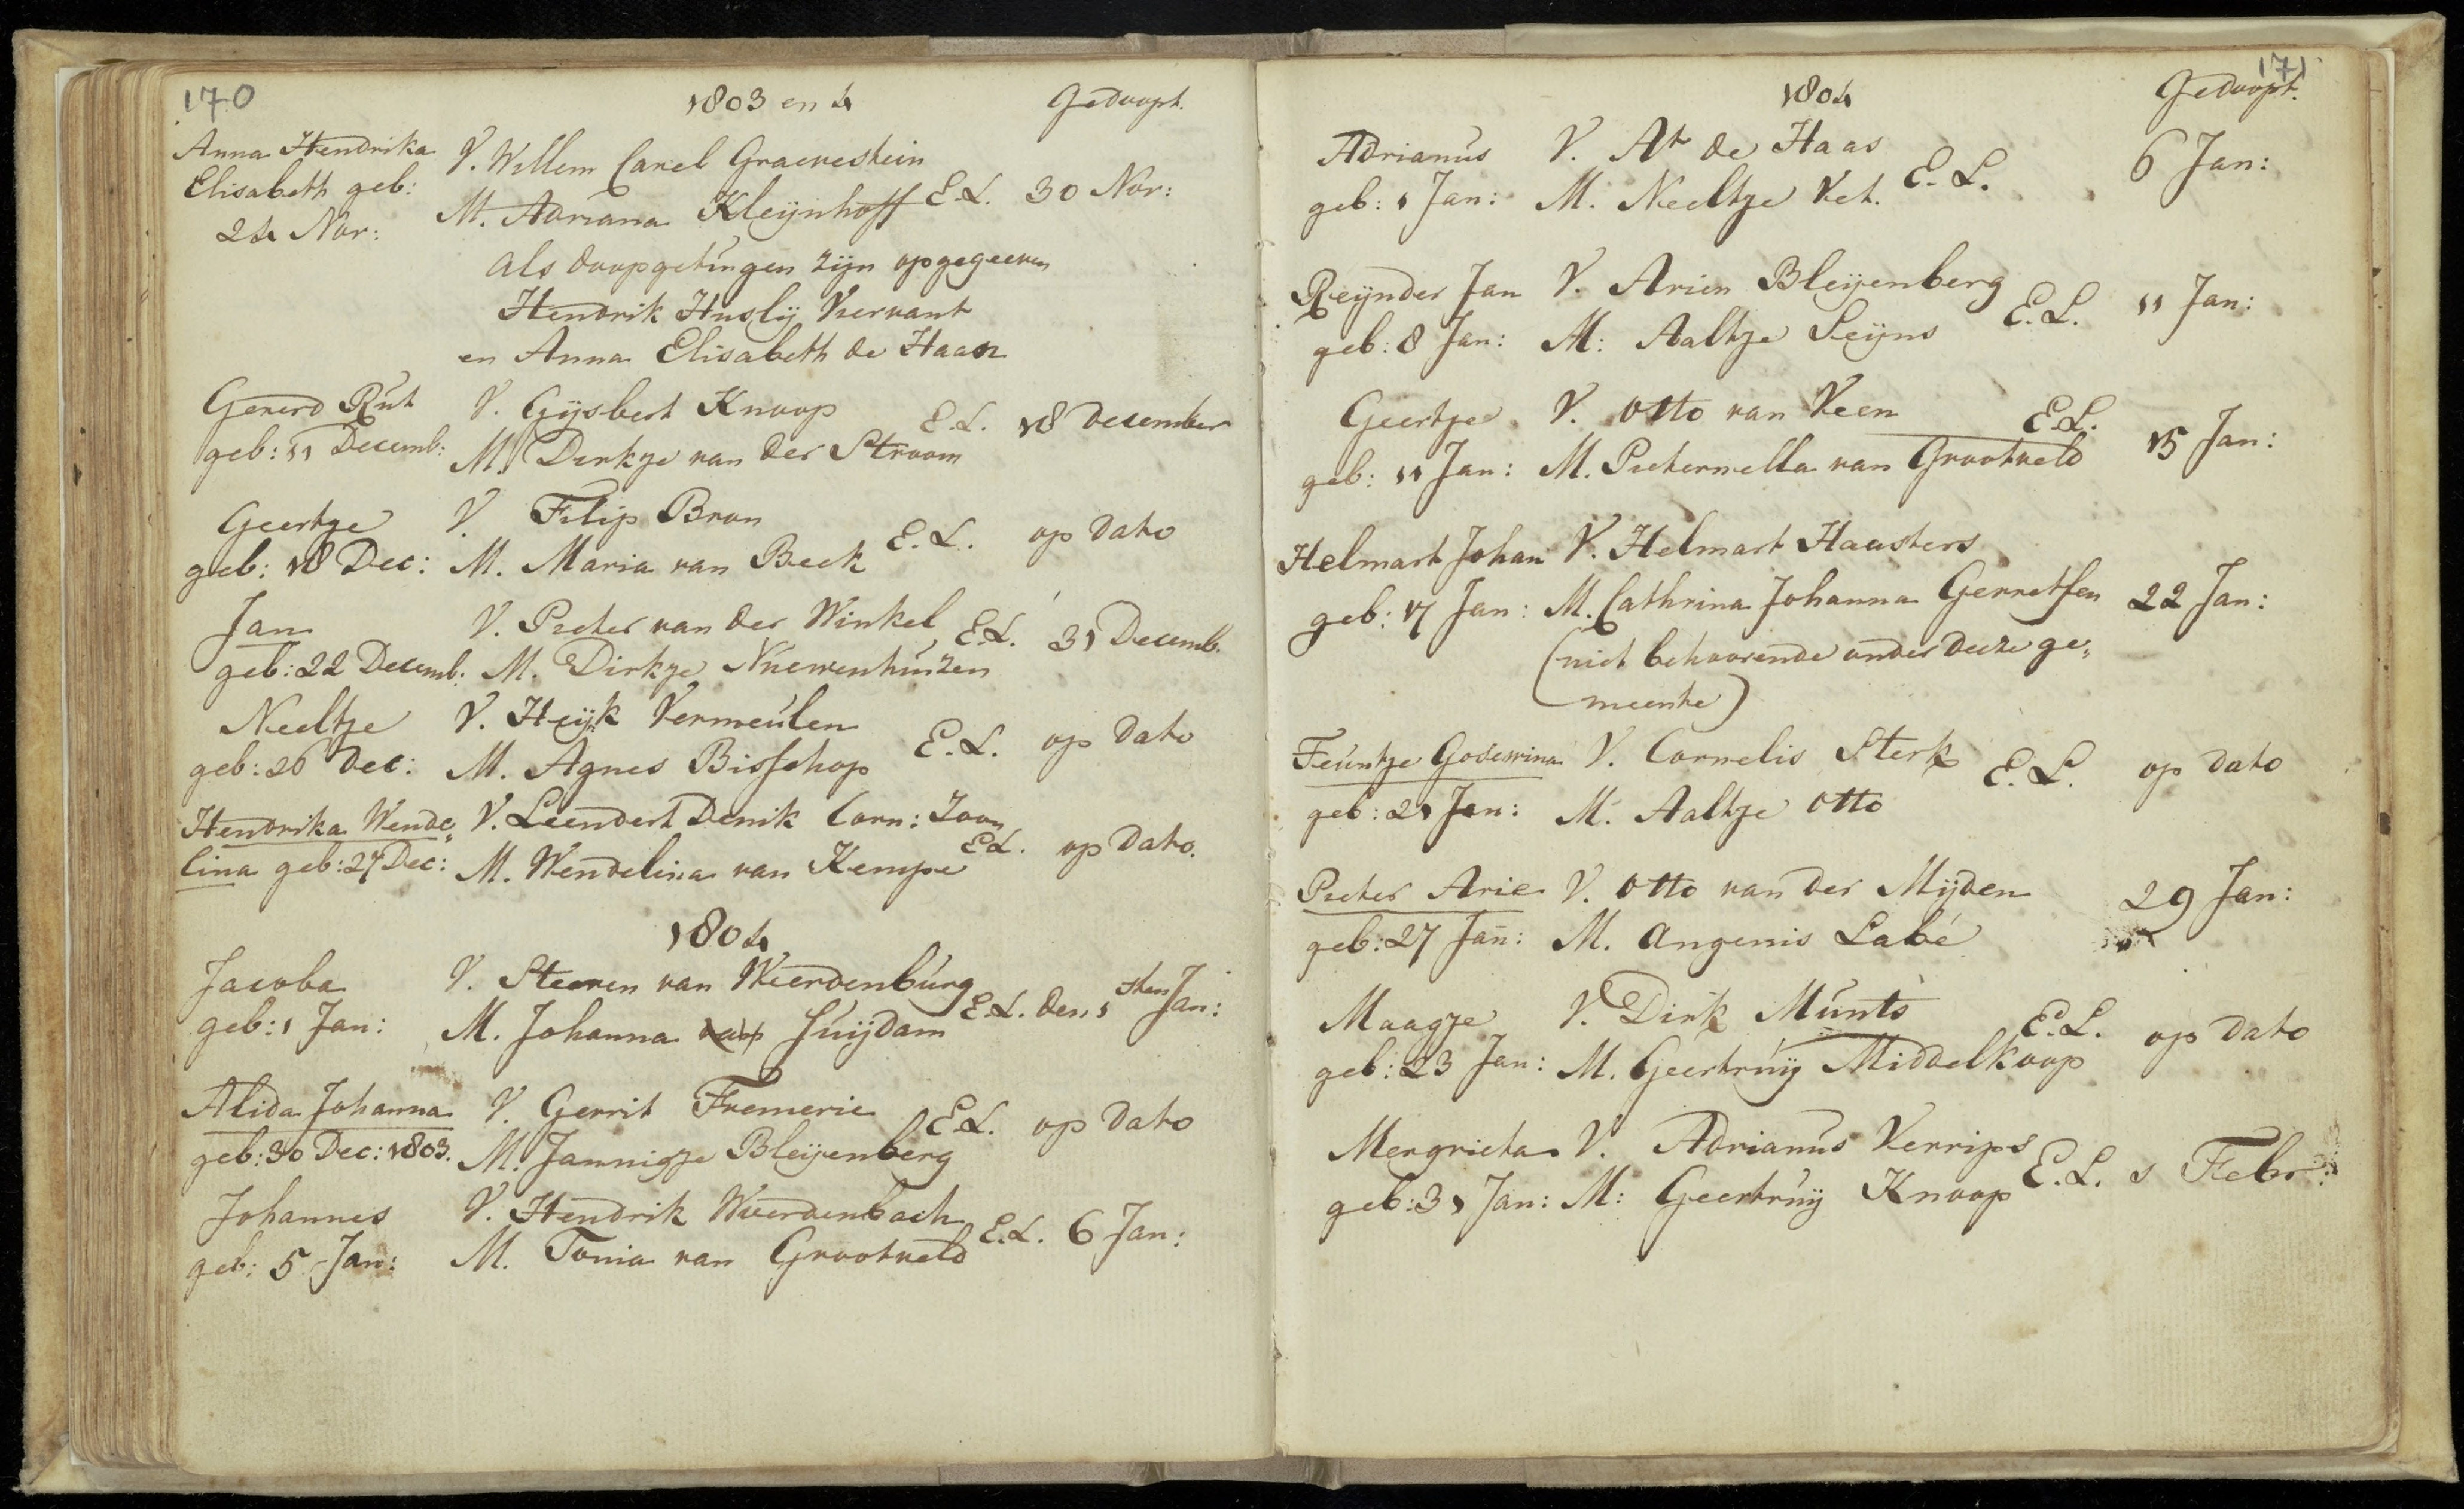 170
1803 en 4 Gedoopt.
Anna Hendrika V. Willem Carel Graevestein
Elisabeth geb: M. Adriana Kleijnhoff E.L. 30 Nov:
24 Nov:
als doopgetuigen zijn opgegeeven
Hendrik Husly Viervant
en Anna Elisabeth de Haan
Gererd Rut V. Gijsbert Knoop E.L. 18 December
geb: 11 Decemb: M. Dirkje van der Stroom
Geertje V. Filip Bron E.L. op dato
geb: 18 Dec: M. Maria van Beek
Jan V. Pieter van der Winkel E.L. 31 Decemb.
geb: 22 Decemb: M. Dirkje Nieuwenhuizen
Neeltje V. Heijk Vermeulen E.L. op dato
geb: 26 Dec: M. Agnes Bisschop
Hendrika Wende„ V. Leendert Denik Corn: Zoon
lina geb: 27 Dec: M. Wendelina van Kempe E.L. op dato.
1804
Jacoba V. Steeven van Weerdenburg E.L. den 1sten Jan:
geb: 1 Jan: M. Johanna van Suijdam
Alida Johanna V. Gerrit Fremerie E.L. op dato
geb: 30 Dec: 1803. M. Jannigje Bleijenberg
Johannes V. Hendrik Weerdenbach E.L. 6 Jan:
geb: 5 Jan: M. Tonia van Grootveld
171
1804 Gedoopt.
Adrianus V. At de Haas E.L. 6 Jan:
geb: 1 Jan: M. Neeltje Vet.
Reijnder Jan V. Arien Bleijenberg E.L. 11 Jan:
geb: 8 Jan: M: Aaltje Seijns
Geertje V. Otto van Veen E.L. 15 Jan:
geb: 11 Jan: M. Pieternella van Grootveld
Helmart Johan V. Helmart Haasters
geb: 17 Jan: M. Cathrina Johanna Gerretsen 22 Jan:
(niet behoorende onder deeze ge„
meente)
Teuntje Gosewina V. Cornelis Sterk E.L. op dato
geb: 21 Jan: M. Aaltje Otto
Pieter Arie V. Otto van der Mijden 29 Jan:
geb: 27 Jan: M. Angenis Labé
Maagje V. Dirk Munts E.L. op dato
geb: 23 Jan: M. Geertruij Middelkoop
Mergrieta V. Adrianus Verrips E.L. 1 Febr:
geb: 31 Jan: M: Geertruij Knoop